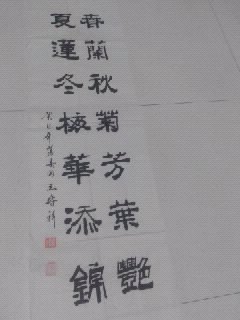 春蘭秋菊芳葉艷
夏蓮冬梅華添錦
癸巳年